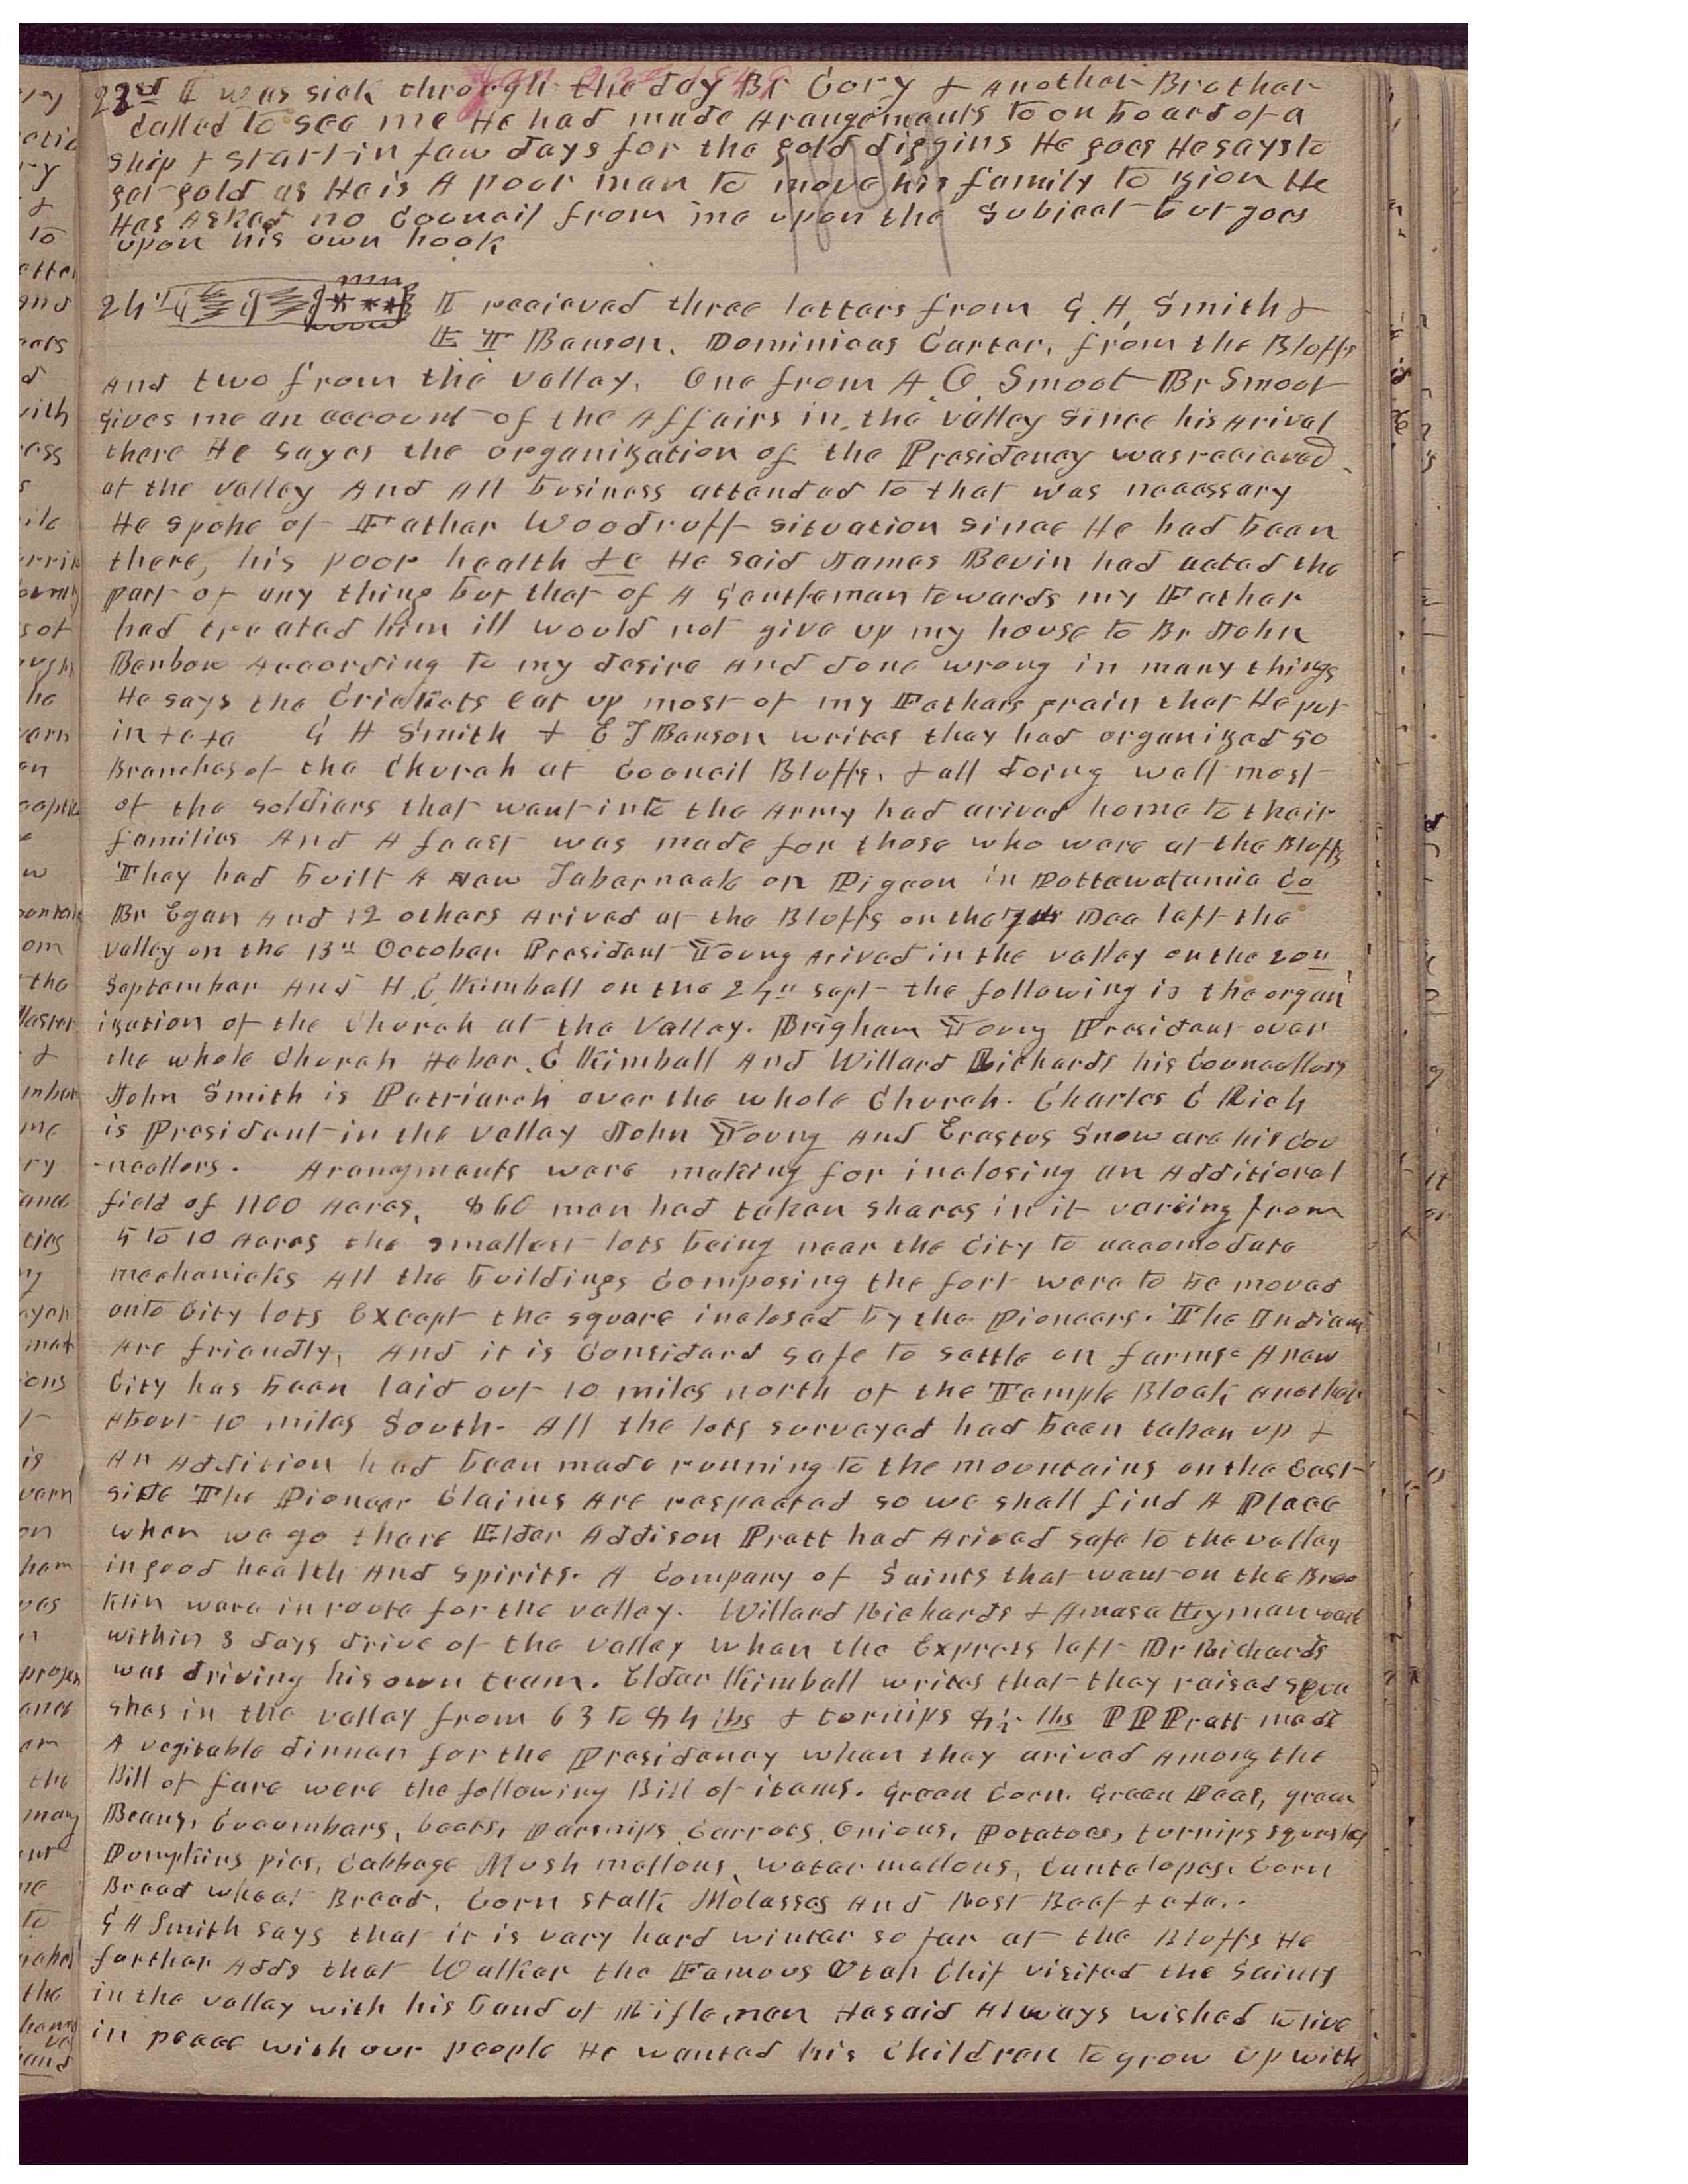 23rd I was sick through the day Br Cory & Another Brother
called to see me He had made Arangements to on board of a
ship & start in few days for the gold diggins He goes He says to
get gold as He is A poor man to move his family to Zion He
Has Asked no Council from me upon the subject but goes
upon his own hook
24th I recieved three letters from G. A. Smith &
E T Benson. Dominicus Carter, from the Bluffs
And two from the valley. One from A. O. Smoot Br Smoot
gives me an account of the Affairs in the valley since his arival
there He sayes the organization of the Presidency was recieved
at the valley And All business attended to that was necessary
He spoke of Father Woodruff situation since He had been
there, his poor health &c He said James Bevin had acted the
part of any thing but that of A Gentleman towards my Father
had treated him ill would not give up my house to Br John
Benbow According to my desire And done wrong in many things
He says the Crickets eat up most of my Fathers grain that He put
in &c &c G A Smith & E T Benson writes they had organized 50
Branches of the Church at Council Bluffs. & all doing well most
of the soldiers that went into the Army had arived home to their
families And A feast was made for those who were at the Bluffs
They had built A New Tabernacle on Pigeon in Pottawatamia Co
Br Egan And 12 others Arived at the Bluffs on the 7th Dec left the
valley on the 13th October President Young Arived in the valley on the 20th
September And H. C Kimball on the 24th Sept the following is the organ
ization of the Church at the Valley. Brigham Young President over
the whole Church Heber. C Kimball And Willard Richards his Councellors
John Smith is Patriarch over the whole Church. Charles C Rich
is President in the valley John Young And Erastus Snow are his Cou
-ncellors. Arangments were making for inclosing an Additional
field of 1100 Acres, 860 men had taken shares in it variing from
5 to 10 Acres the smallest lots being near the City to accomodate
mechanicks All the buildings Composing the fort were to be moved
onto City lots Except the square inclosed by the Pioneers. The Indians
Are friendly, And it is Considerd safe to settle on farms. A new
City has been laid out 10 miles north of the Temple Block another
About 10 miles South. All the lots surveyed had been taken up &
An Addition had been made running to the mountains on the East
side The Pioneer Claims Are respected so we shall find A Place
when we go there Elder Addison Pratt had Arived safe to the valley
in good health And spirits. A Company of Saints that went on the Broo
klin were in route for the valley. Willard Richards & Amasa Lyman were
within 8 days drive of the valley when the Express left Dr Richards
was driving his own team. Elder Kimball writes that they raised squa
shes in the valley from 63 to 84 lbs & tornips 8½ lbs P P Pratt made
A vegitable dinner for the Presidency when they arived Among the
Bill of fare were the following Bill of items. Green Corn. Green Peas, green
Beans, Cucumbers, beets, parsnips Carrots, Onions, Potatoes, turnips squashes
Pumpkins pies, Cabbage Mush mellons, water mellons, Cantelopes. Corn
Bread wheat Bread, Corn stalk Molasses And Rost Beef &c &c..
G A Smith says that it is vary hard winter so far at the Bluffs He
farther Adds that Walker the Famous Utah Chif visited the Saints
in the valley with his band of Riflemen He said Always wished to live
in peace with our people He wanted his Children to grow up with